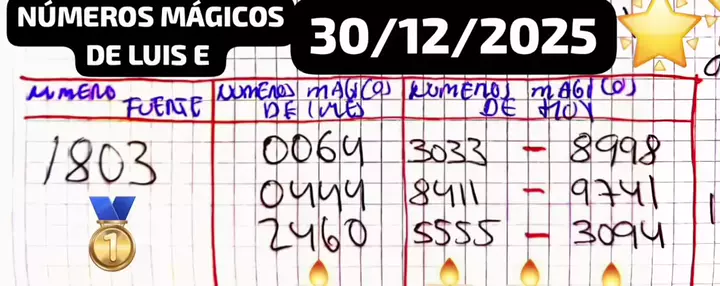 NÚMEROS MÁGICOS
DE LUIS E
30/12/2025
NUMERO FUENTE
NUMEROS MAGICOS DE LUIS
NUMEROS MAGICOS DE HOY
1803
0064 3033 - 8998
0444 8411 - 9741
2460 5555 - 3094
1